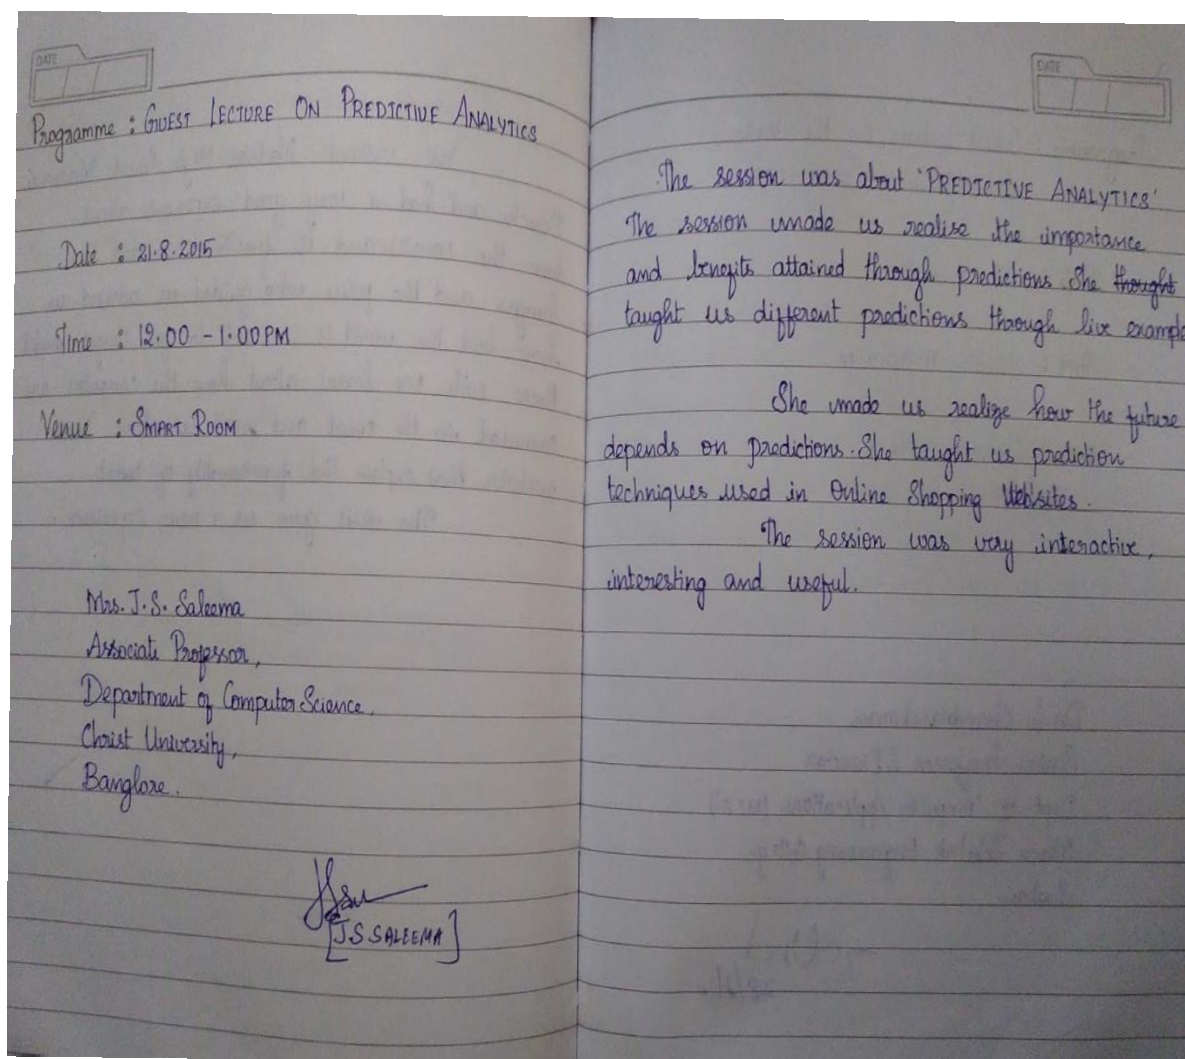 DATE
Programme : GUEST LECTURE ON PREDICTIVE ANALYTICS
Date : 21.8.2015
Time : 12.00 - 1.00 PM
Venue : SMART ROOM.
Mrs. J.S. Saleema
Associate Professor,
Department of Computer Science,
Christ University,
Banglore.
[J.S SALEEMA]
DATE
The session was about 'PREDICTIVE ANALYTICS'
The session made us realise the importance
and benefits attained through predictions. She thought
taught us different predictions through live example
She made us realize how the future
depends on predictions. She taught us prediction
techniques used in Online Shopping Websites.
The session was very interactive,
interesting and useful.